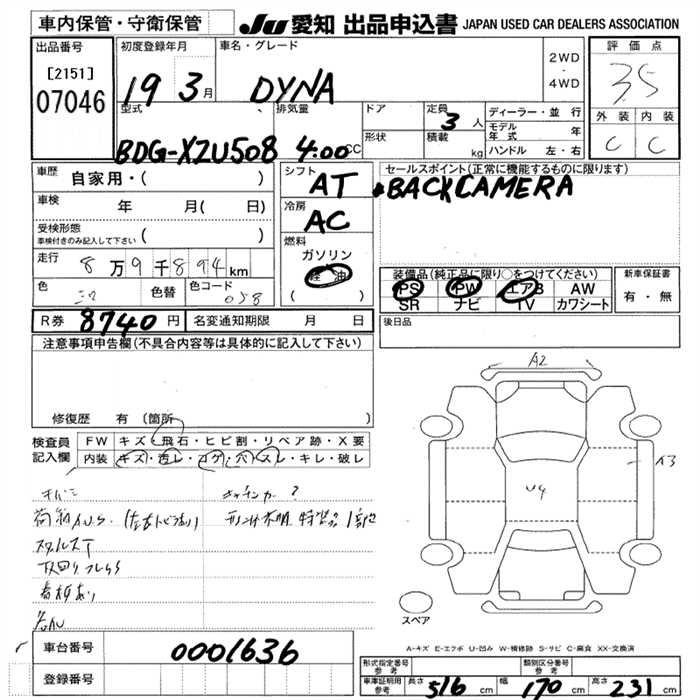 車内保管・守衛保管
JU 愛知 出品申込書 JAPAN USED CAR DEALERS ASSOCIATION
出品番号
[2151]
07046
初度登録年月
19 3月
車名・グレード
DYNA
2WD
・
4WD
評価点
3.5
外装 内装
C C
型式
BDG-XZU508
排気量
4.00 CC
ドア
形状
定員
3 人
積載
kg
ディーラー・並行
モデル年式 年
ハンドル 左・右
車歴
自家用・( )
車検
年 月( 日)
受検形態
車検付きのみ記入して下さい ( )
走行
8万9千894km
色
色替
色コード
058
シフト
AT
冷房
AC
燃料
ガソリン
軽油
( )
セールスポイント(正常に機能するものに限ります)
BACK CAMERA
装備品(純正品に限り○をつけてください)
PS PW エアB AW
SR ナビ TV カワシート
新車保証書
有・無
R券 8740円 名変通知期限 月 日
後日品
注意事項申告欄(不具合内容等は具体的に記入して下さい)
修復歴 有 (箇所 )
検査員記入欄
FW キズ・飛石・ヒビ割・リペア跡・X要
内装 キズ・汚レ・コゲ・穴・スレ・キレ・破レ
A2
A3
U4
スペア
A-キズ E-エクボ U-凹み W-補修跡 S-サビ C-腐食 XX-交換済
車台番号 0001636
登録番号
形式指定番号 参考
類別区分番号 参考
車庫証明用 参考 長さ 516 cm 幅 170 cm 高さ 231 cm